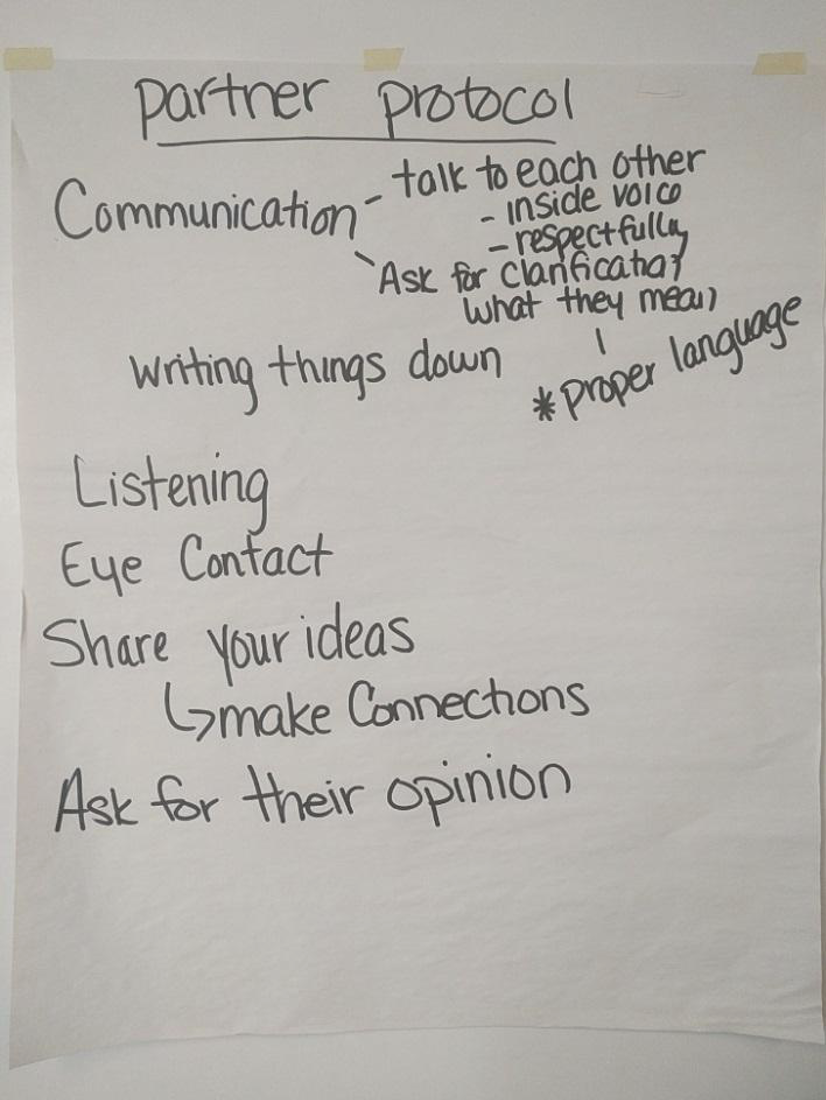 partner protocol
Communication - talk to each other
- inside voice
- respectfully
Ask for clarification
what they mean
Writing things down
* proper language
Listening
Eye Contact
Share your ideas
↳ make Connections
Ask for their opinion